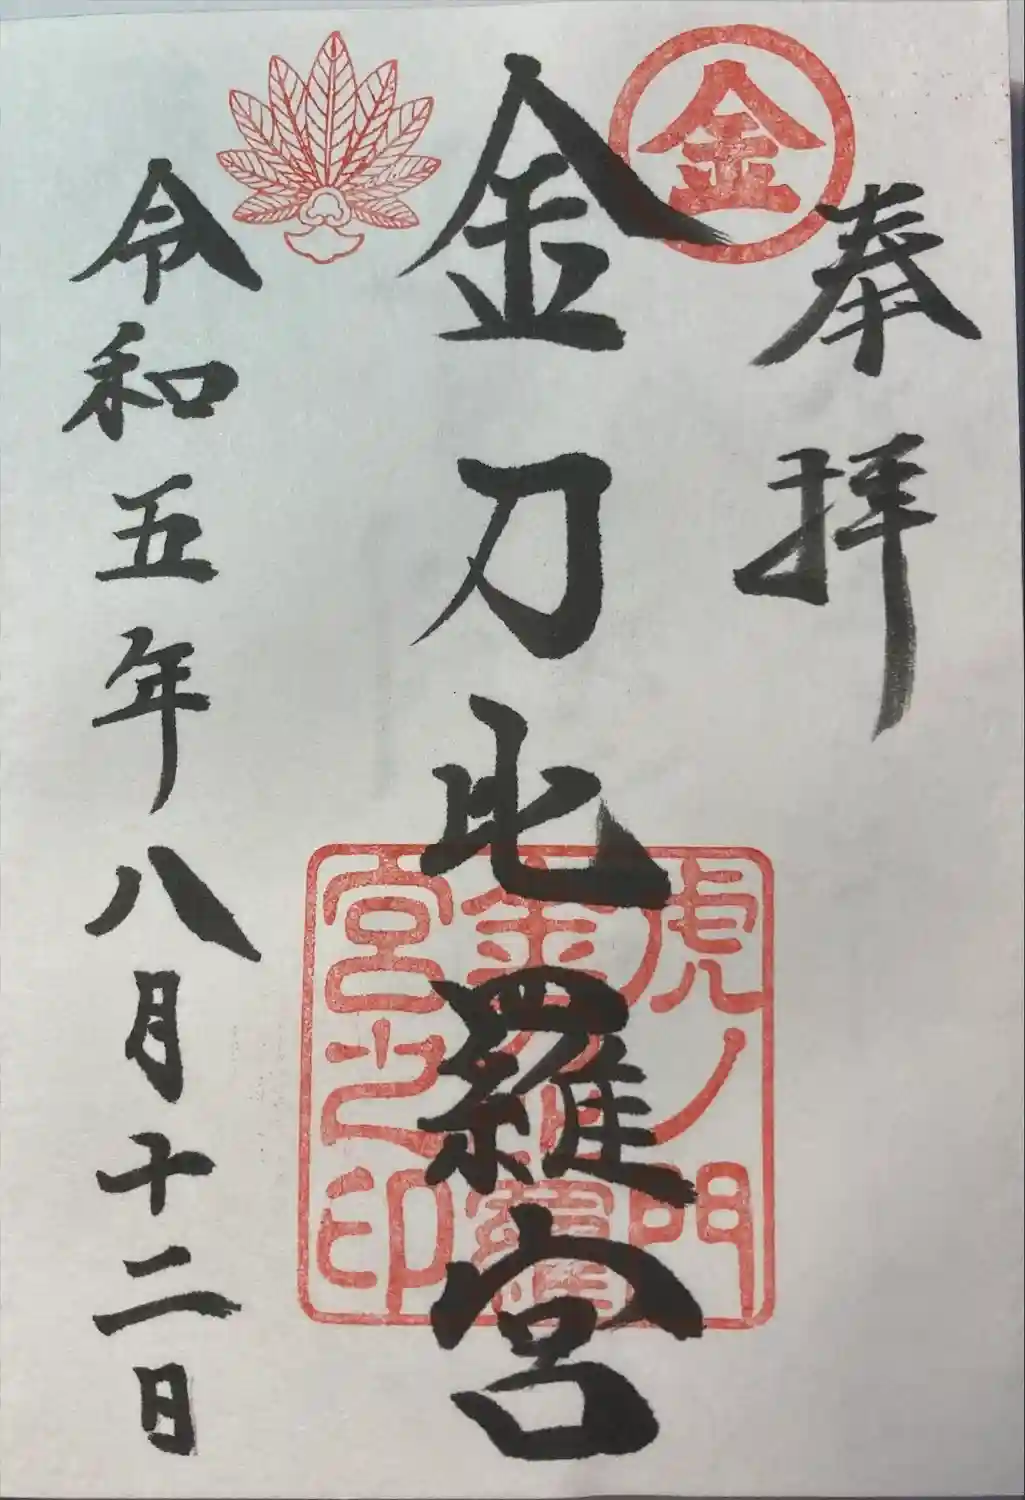 奉拝
金
金刀比羅宮
虎ノ門
金刀比羅
宮之印
令和五年八月十二日